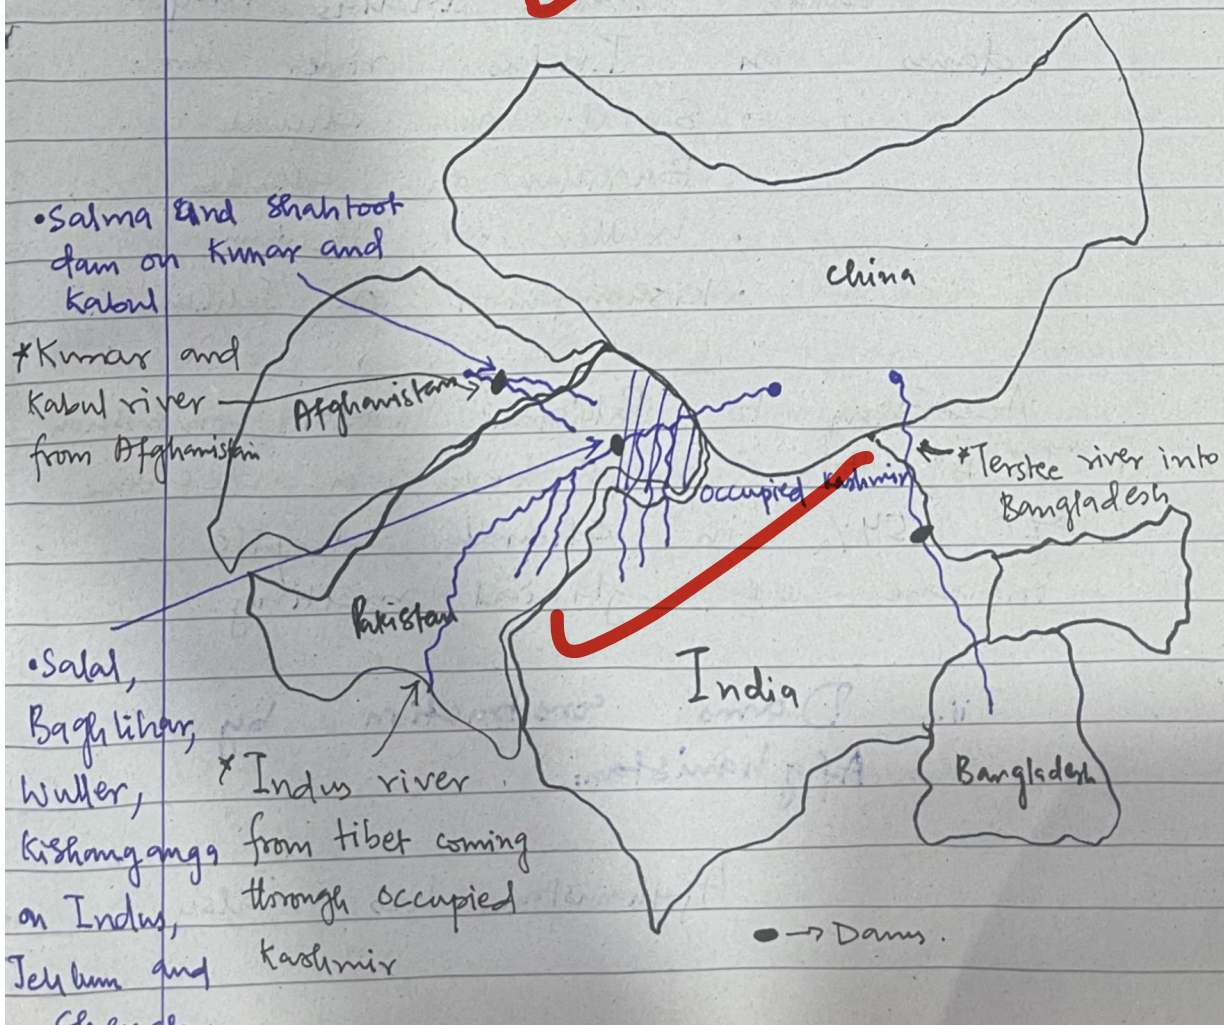 •Salma and Shahtoot
dam on Kunar and
Kabul
*Kunar and
Kabul river
from Afghanistan
Afghanistan
China
occupied Kashmir
*Terstee river into
Bangladesh
Pakistan
India
Bangladesh
•Salal,
Baghlihar,
Wuller,
Kishanganga
on Indus,
Jehlum and
* Indus river
from tibet coming
through occupied
Kashmir
→ Dams.